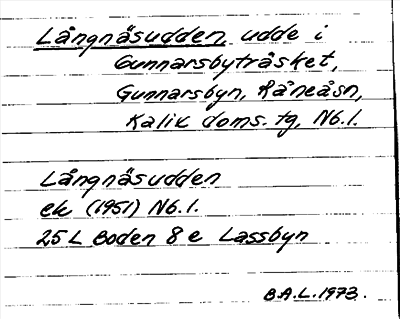 Långnäsudden, udde i
Gunnarsbyträsket,
Gunnarsbyn, Råneåsn,
Kalix doms. tg, Nb.l.
Långnäsudden
ek (1951) Nb.l.
25 L Boden 8 e Lassbyn
B.A.L. 1973.